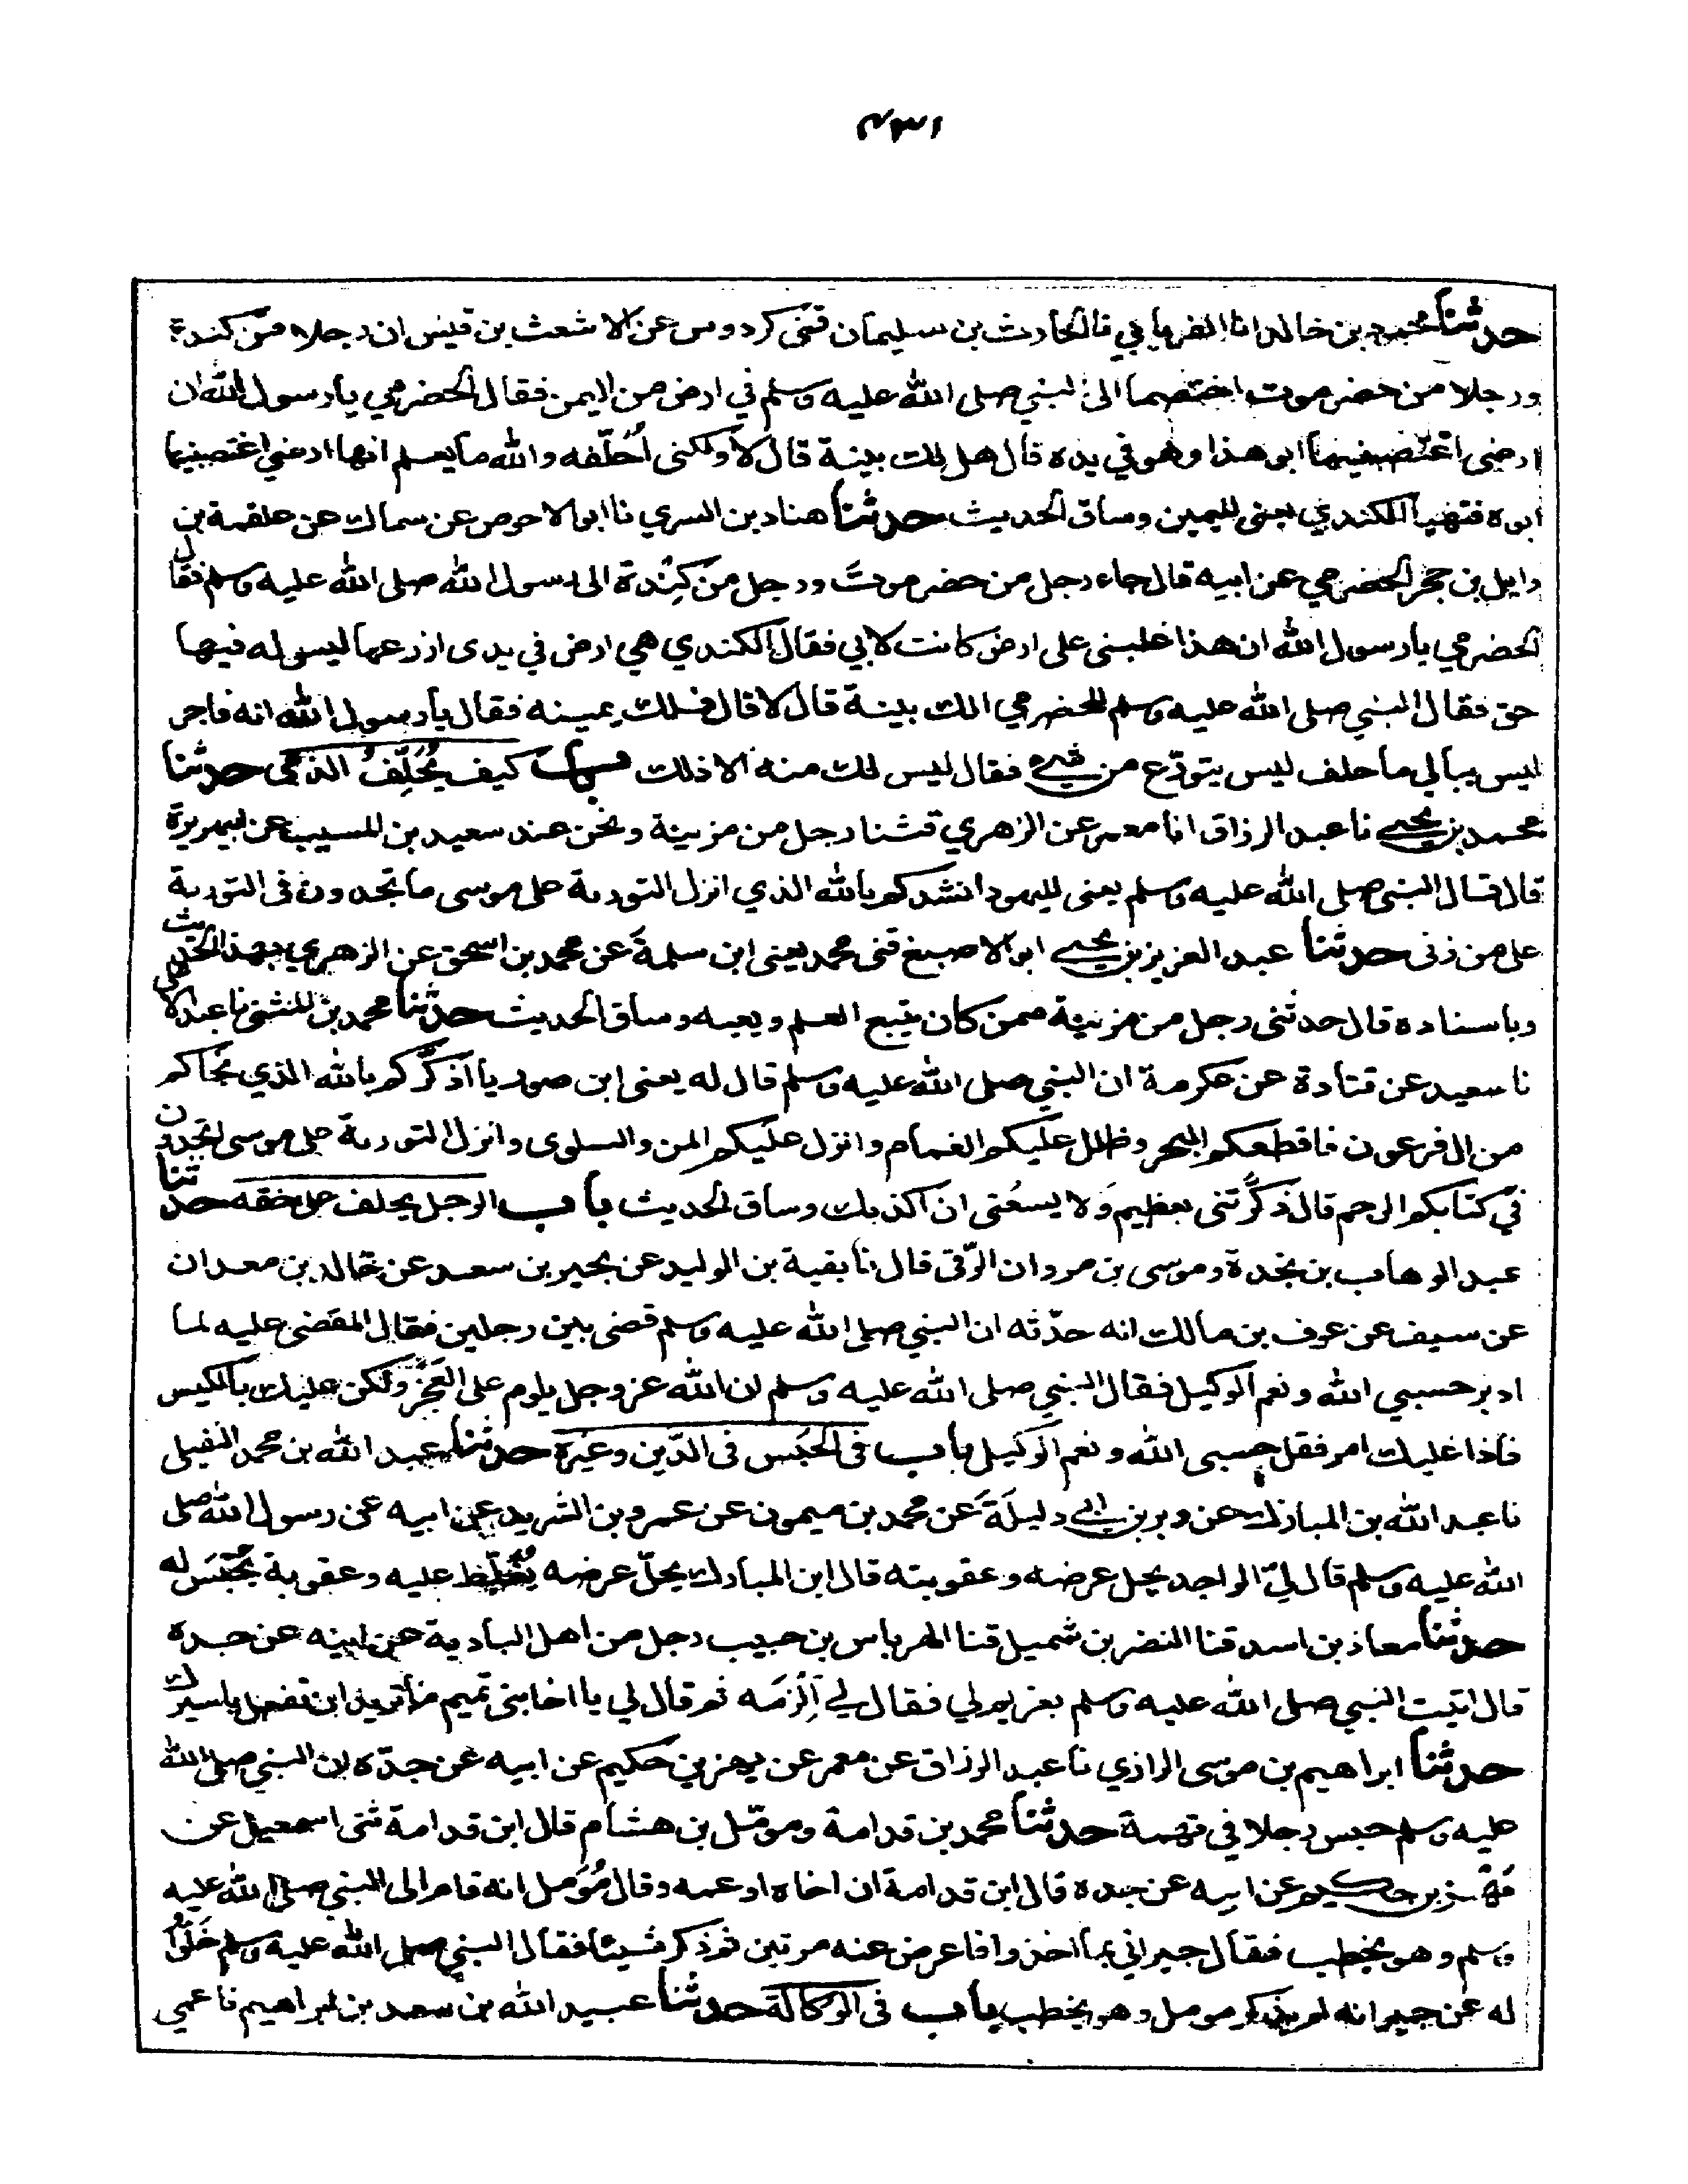 حدثنا محمود بن خالد انا الفريابي نا الحارث بن سليمان قثنى كردوس عن الاشعث بن قيس ان رجلا من كندة
ورجلا من حضرموت اختصما الى النبي صلى الله عليه وسلم في ارض من اليمن فقال الحضرمي يا رسول الله ان
ارضى اغتصبنيها ابو هذا وهو في يده قال هل لك بينة قال لا ولكنى اُحلّفه والله ما يعلم انها ارضي اغتصبنيها
ابوه فتهيأ الكندي يعنى لليمين وساق الحديث حدثنا هناد بن السري نا ابو الاحوص عن سماك عن علقمة بن
وايل بن حجر الحضرمي عن ابيه قال جاء رجل من حضرموت ورجل من كِندة الى رسول الله صلى الله عليه وسلم فقال
الحضرمي يا رسول الله ان هذا غلبنى على ارض كانت لابي فقال الكندي هي ارض في يدى ازرعها ليس له فيها
حق فقال النبي صلى الله عليه وسلم للحضرمي الك بينة قال لا قال فلك يمينه فقال يا رسول الله انه فاجر
ليس يبالي ما حلف ليس يتورّع من شيء فقال ليس لك منه الا ذلك باب كيف يُحَلِّفُ الذمى حدثنا
محمد بن يحيى نا عبد الرزاق انا معمر عن الزهري قثنا رجل من مزينة ونحن عند سعيد بن المسيب عن ابيهريرة
قال قال النبى صلى الله عليه وسلم يعنى لليهود انشدكم بالله الذي انزل التورىة على موسى ما تجدون فى التورىة
على من زنى حدثنا عبد العزيز بن يحيى ابو الاصبغ قثنى محمد يعنى ابن سلمةَ عن محمد بن اسحق عن الزهري بهذا الحديث
وباسناده قال حدثنى رجل من مزينة ممن كان يتبع العلم ويعيه وساق الحديث حدثنا محمد بن المثنى نا عبد الاعلى
نا سعيد عن قتادة عن عكرمة ان النبي صلى الله عليه وسلم قال له يعنى ابن صوريا اذكّركم بالله الذي نجاكم
من ال فرعون فاقطعكم البحر وظلل عليكم الغمام وانزل عليكم المن والسلوى وانزل التورىة على موسى اتجدون
في كتابكم الرجم قال ذكَّرتنى بعظيم وَلا يسعُنى ان اكذبك وساق الحديث باب الرجل يحلف على حقه حدثنا
عبد الوهاب بن نجدة وموسى بن مروان الرّقى قال نا بقية بن الوليد عن بحير بن سعد عن خالد بن معدان
عن سيف عن عوف بن مالك انه حدّثه ان النبي صلى الله عليه وسلم قضى بين رجلين فقال المقضى عليه لما
ادبر حسبي الله ونعم الوكيل فقال النبي صلى الله عليه وسلم ان الله عز وجل يلوم على العَجْز ولكن عليك بالكيس
فاذا غلبك امر فقل حسبى الله ونعم الوكيل باب فى الحَبْس فى الدَّين وغيره حدثنا عبد الله بن محمد النفيلى
نا عبد الله بن المبارك عن وبر بن ابي دليلَةَ عَن محمد بن ميمون عن عمرو بن الشريد عن ابيه عن رسول الله صلى
الله عليه وسلم قال ليّ الواجد يحل عرضه وعقوبته قال ابن المبارك يحلّ عرضه يُغلِّظ عليه وعقوبة يُحْبَسُ له
حدثنا معاذ بن اسد قنا النضر بن شميل قنا الهرماس بن حبيب رجل من اهل البادية عن ابيه عن جده
قال اتيت النبي صلى الله عليه وسلم بغريم لي فقال لي اِلْزَمه ثم قال لي يا اخا بنى تميم ما تريد ان تفعل باسيرك
حدثنا ابراهيم بن موسى الرازي نا عبد الرزاق عن معمر عن بهز بن حكيم عن ابيه عن جدّه ان النبي صلى الله
عليه وسلم حبس رجلا في تهمة حدثنا محمد بن قدامة ومومّل بن هشام قال ابن قدامة ثنى اسمعيل عن
بَهْز بن حكيم عن ابيه عن جده قال ابن قدامة ان اخاه او عمه وقال مُؤمل انه قام الى النبي صلى الله عليه
وسلم وهو يخطب فقال جيراني بما اخذوا فاعرض عنه مرتين ثم ذكر شيئا فقال النبي صلى الله عليه وسلم خَلّوا
له عن جيرانه لم يذكر مومل وهو يخطب باب فى الوكالة حدثنا عبيد الله بن سعد بن ابراهيم نا عمي